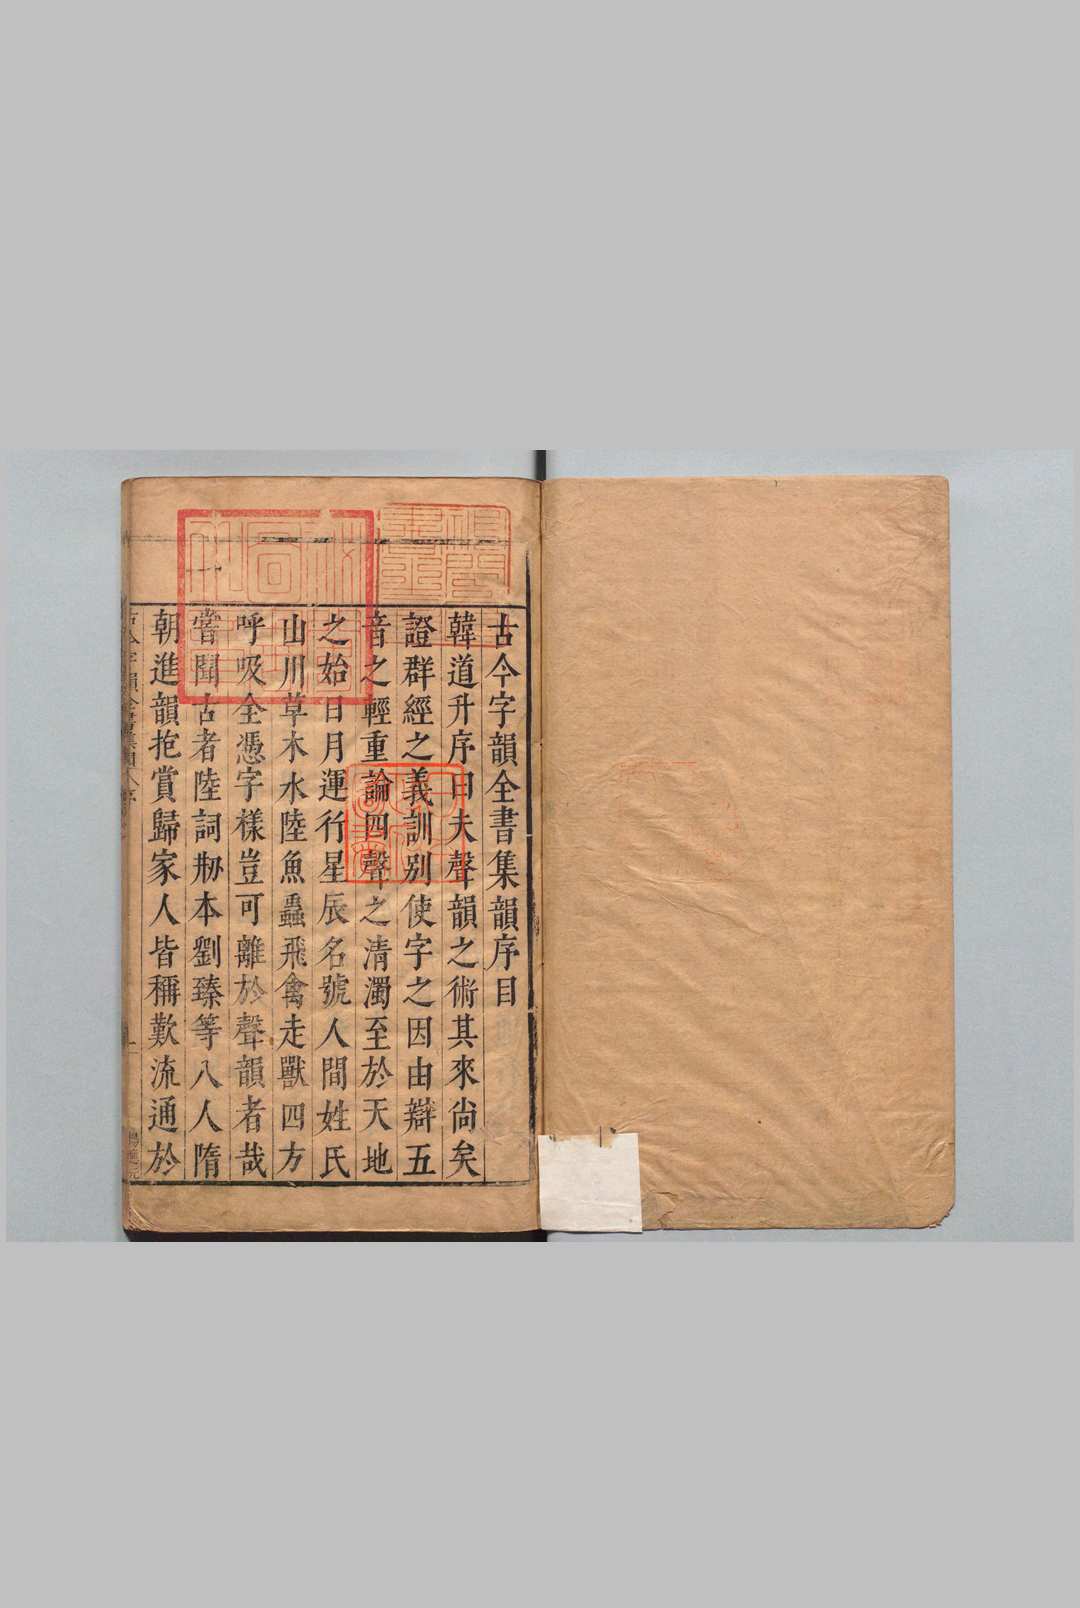 古今字韻全書集韻序目
韓道升序曰夫聲韻之術其來尙矣
證群經之義訓別使字之因由辯五
音之輕重論四聲之清濁至於天地
之始日月運行星辰名號人間姓氏
山川草木水陸魚蟲飛禽走獸四方
呼吸全憑字樣豈可離於聲韻者哉
嘗聞古者陸詞刱本劉臻等八人隋
朝進韻抱賞歸家人皆稱歎流通於